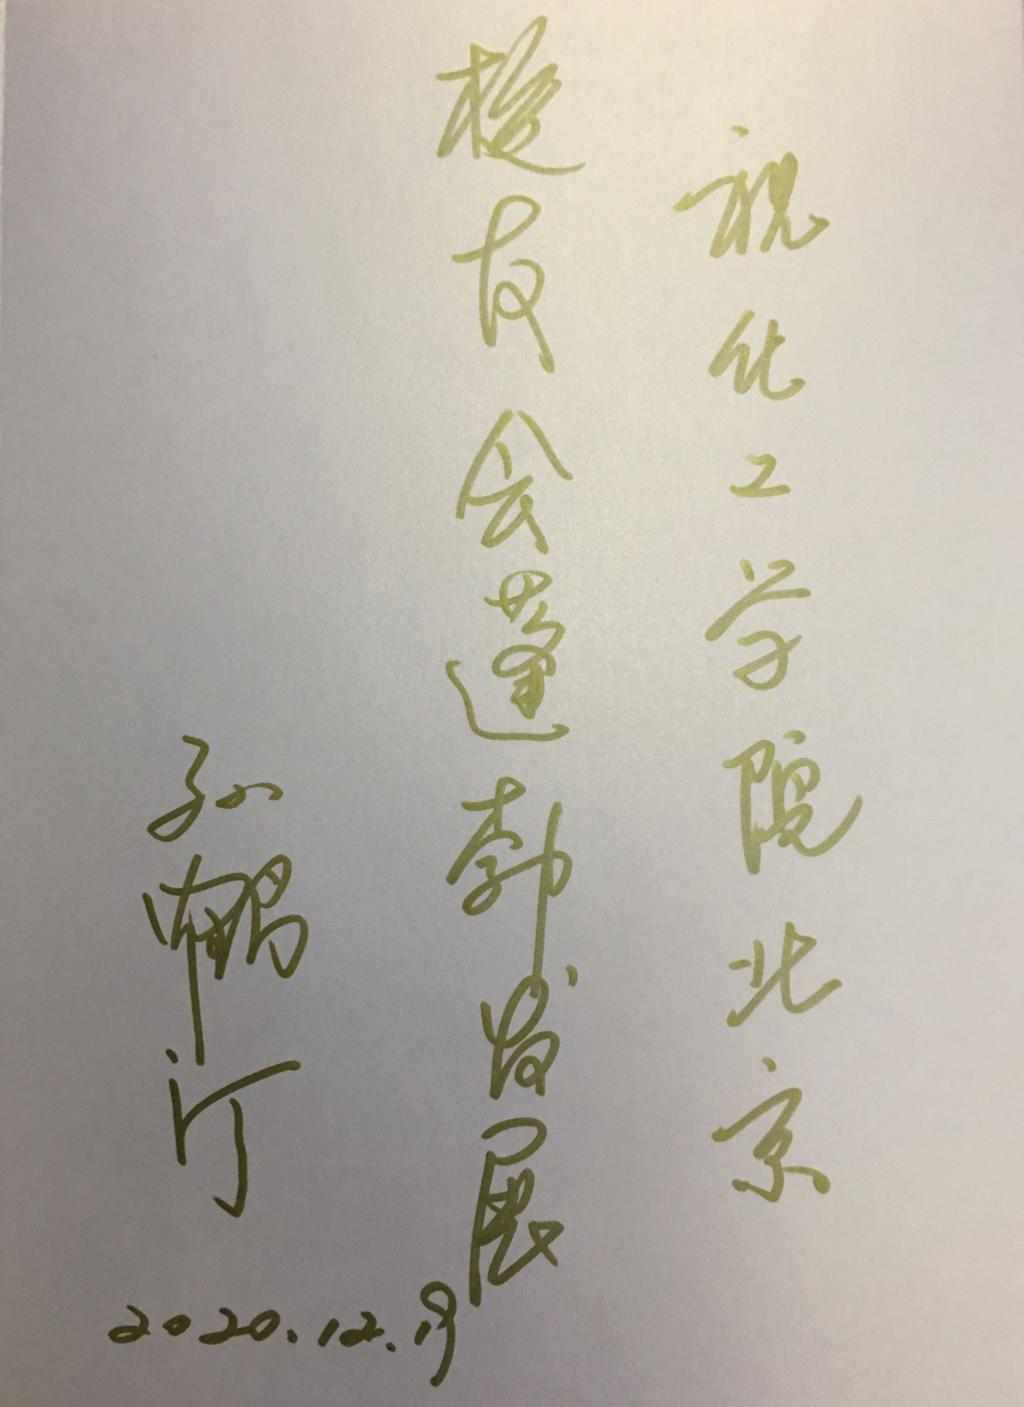 祝化工学院北京
校友会蓬勃发展
孙鹤汀
2020.12.19